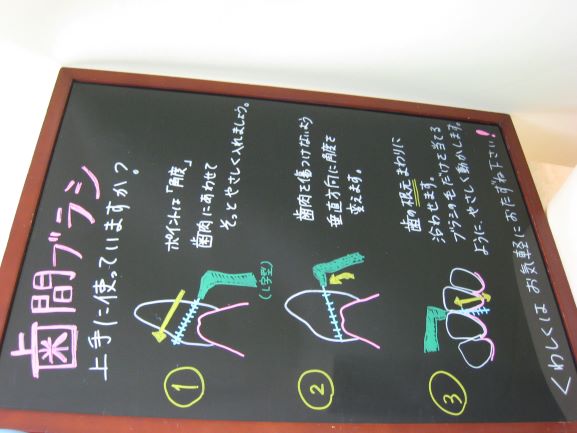 歯間ブラシ
上手に使っていますか?
①
ポイントは「角度」
歯肉にあわせて
そっとやさしく入れましょう。
(L字型)
②
歯肉を傷つけないよう
垂直方向に角度を
変えます。
③
歯の根元まわりに
沿わせます。
ブラシの毛だけを当てる
ように、やさしく動かします。
くわしくは お気軽におたずね下さい!